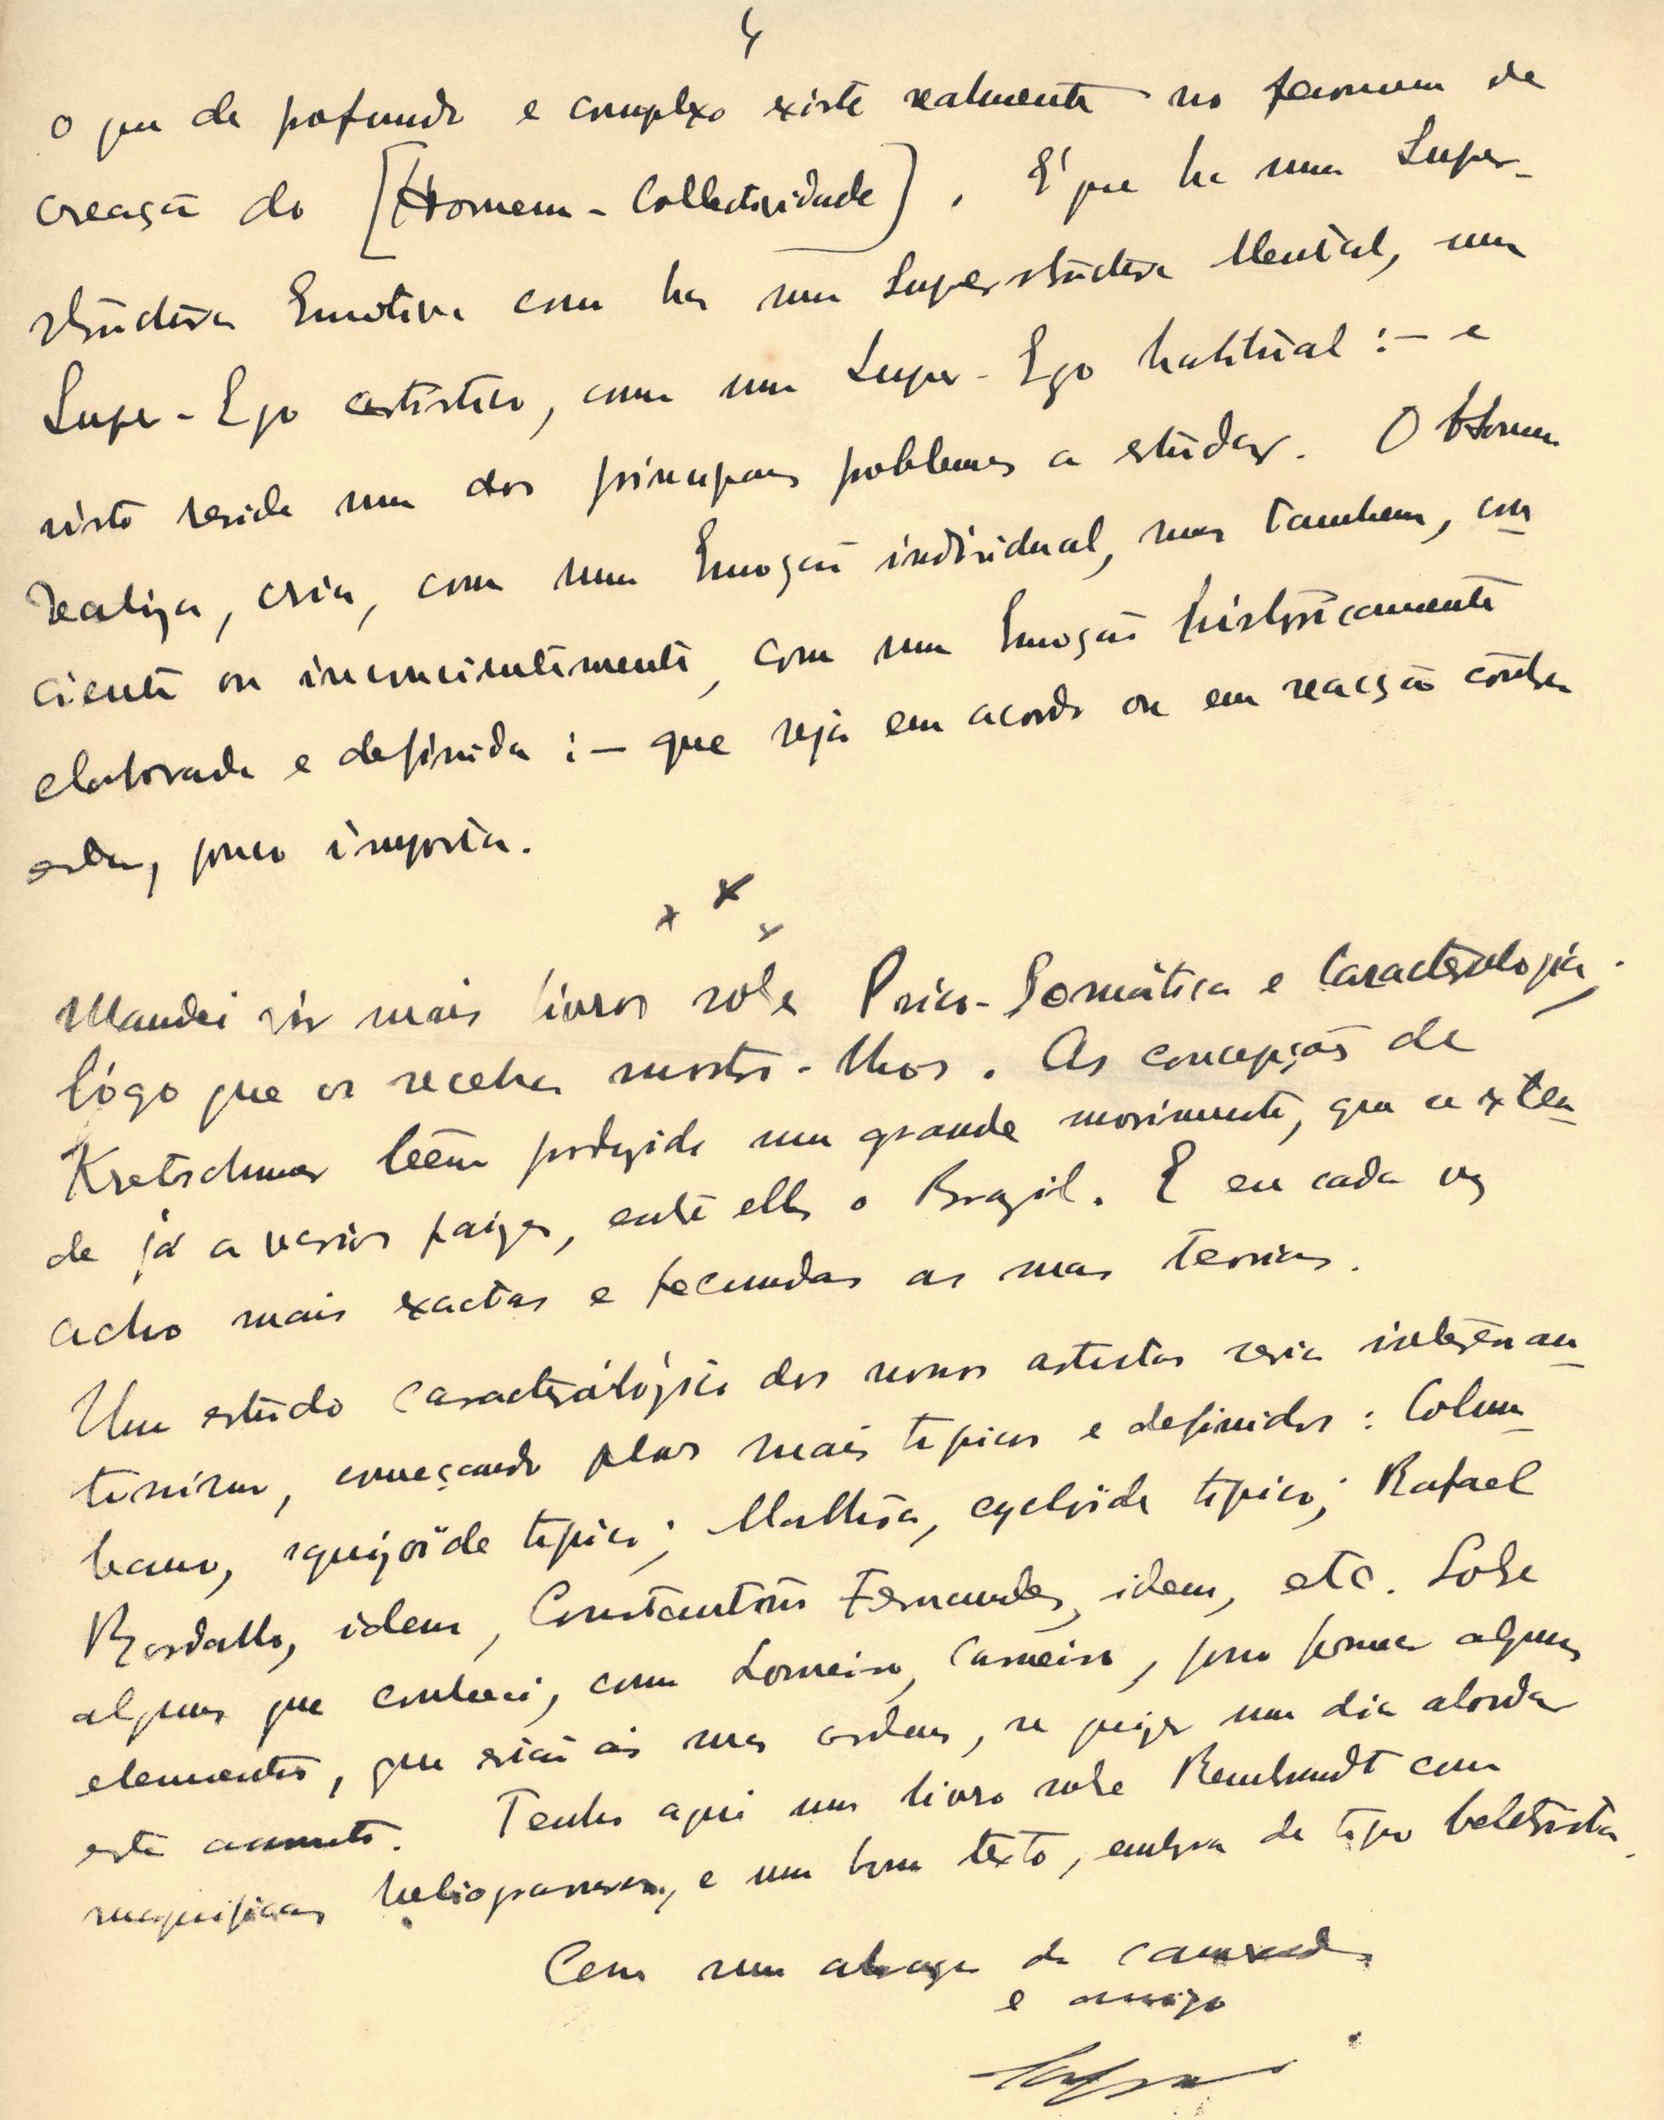 4
O que de profundo e complexo existe realmente no fenomeno de
creação do [Homem - Collectividade]. É que ha uma Super-
structura Emotiva como ha uma Superstructura Mental, um
Super-Ego artistico, como um Super-Ego habitual :- e
nisto reside um dos principaes problemas a estudar. O Homem
realiza, cria, com uma Emoção individual, mas tambem, con-
ciente ou inconscientemente, com uma Emoção historicamente
elaborada e definida :- que seja em acordo ou em reacção contra
esta, pouco importa.
x x x
Mandei vir mais livros sobre Psico-Somática e Caracterologia;
lógo que os receba mostro-lhos. As concepções de
Kretschmer teem produzido um grande movimento, que se exten-
de já a varios paizes, entre elles o Brazil. E eu cada vez
acho mais exactas e fecundas as suas teorias.
Um estudo caracterológico dos nossos artistas seria interessan-
tissimo, começando pelos mais tipicos e definidos: Colum-
bano, squizoïde tipico; Malhôa, cycloïde tipico; Rafael
Bordallo, idem, Constantino Fernandes, idem, etc. Sobre
alguns que conheci, como Loureiro, Carneiro, posso fornecer alguns
elementos, que estão ás suas ordens, se quizer um dia abordar
este assumpto. Tenho aqui um livro sobre Rembrandt com
magnificas heliogravuras, e um bom texto, embora de tipo beletrista.
Com um abraço de camarada
e amigo